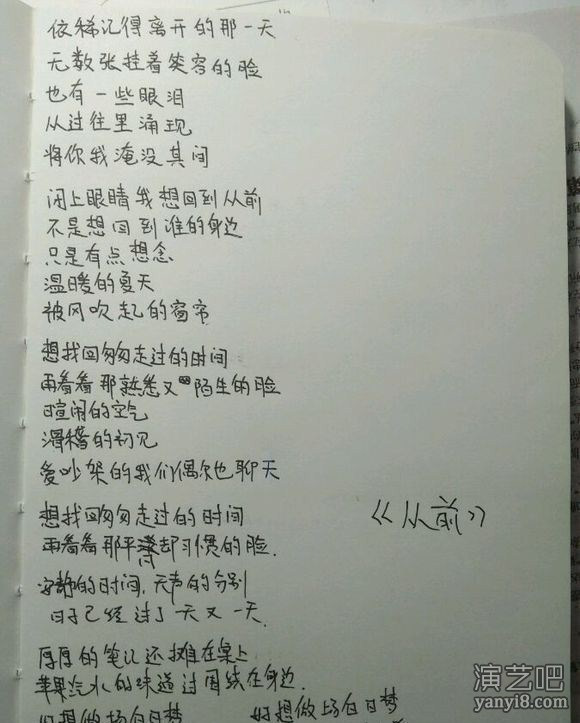 依稀记得离开的那一天
无数张挂着笑容的脸
也有一些眼泪
从过往里涌现
将你我淹没其间
闭上眼睛我想回到从前
不是想回到谁的身边
只是有点想念
温暖的夏天
被风吹起的窗帘
想找回匆匆走过的时间
再看看那熟悉又陌生的脸
喧闹的空气
滑稽的初见
爱吵架的我们偶尔也聊天
想找回匆匆走过的时间
《从前》
再看看那平淡却习惯的脸.
安静的时间,无声的分别
日子已经过了一天又一天.
厚厚的笔记还摊在桌上
苹果汽水的味道过围绕在身边.
好想做场白日梦
好想做场白日梦
演艺吧
www.yanyi8.com